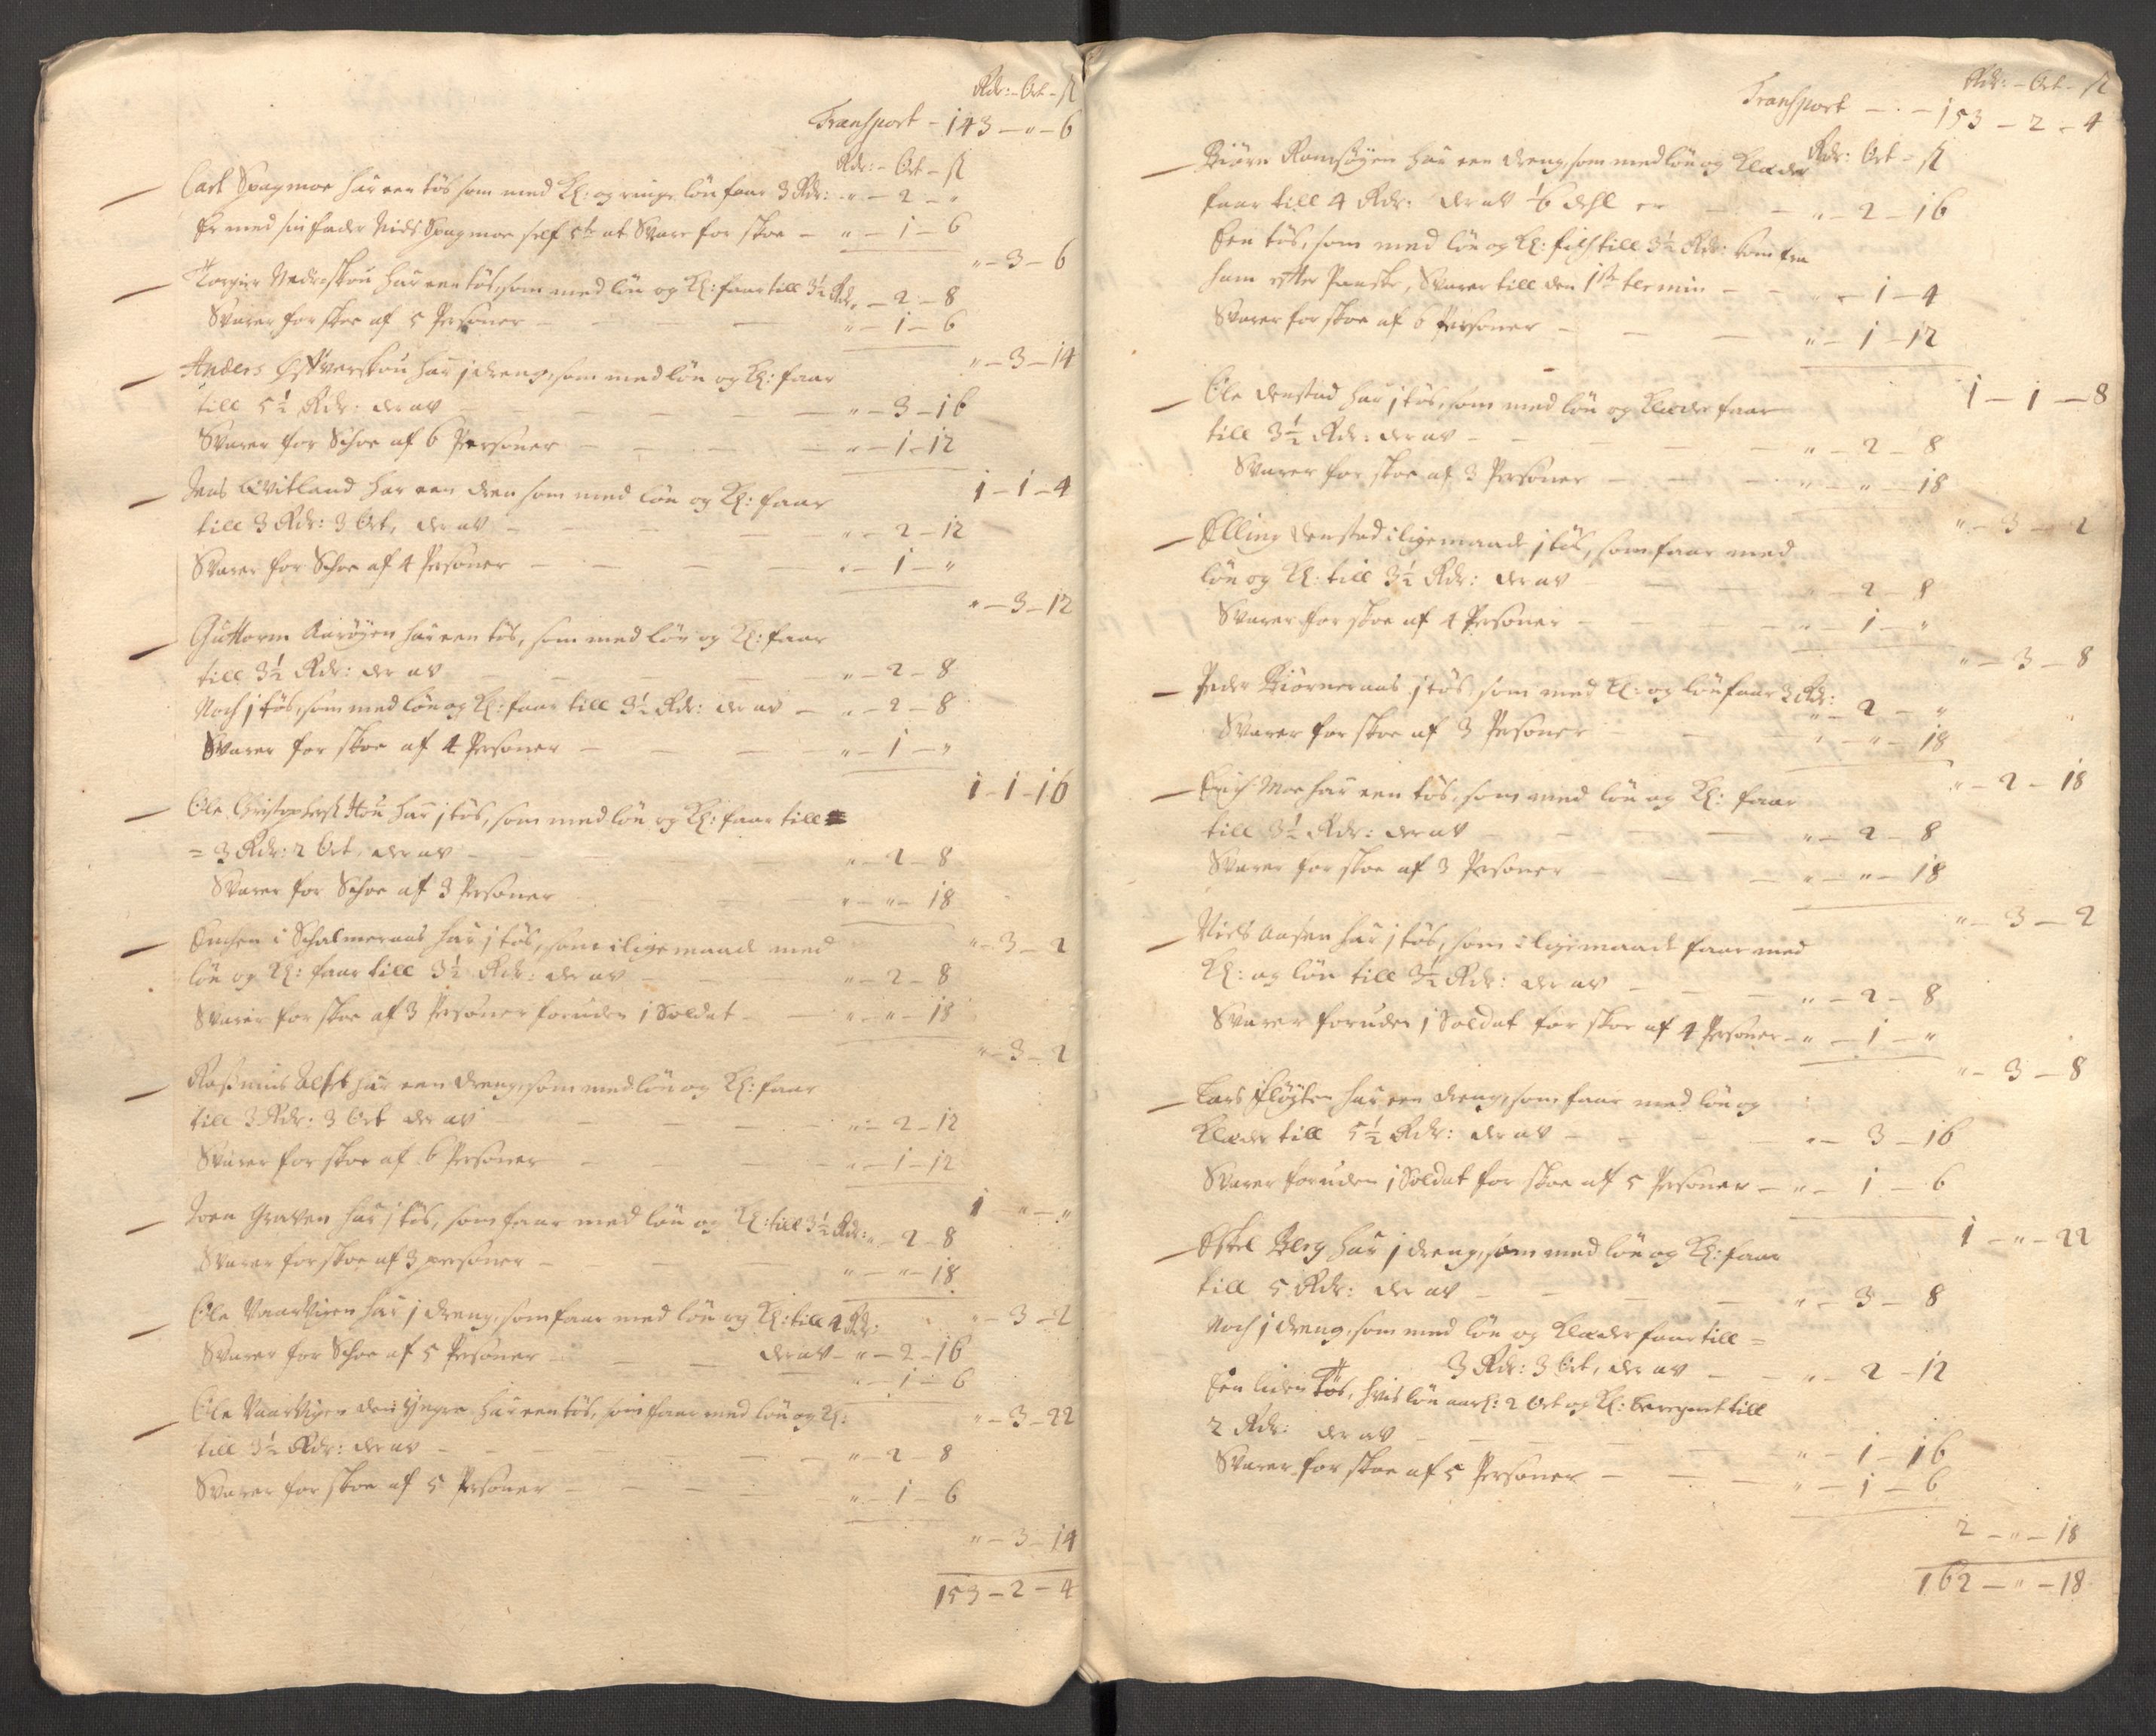 Rdr: – Ort – ß
Transport – 143 – " – 6
Rdr: – Ort – ß
Carl Spagmoe har een tös som med Kl: og ringe lön faar 3 Rdr: " – 2 – "
Er med sin fader Niels Spagmoe self 5te at Svare for skoe – " – 1 – 6
" – 3 – 6
Torgier Nedreskou har een tös, som med lön og Kl: faar till 3½ Rdr. – 2 – 8
Svarer for skoe af 5 Personer – " – 1 – 6
" – 3 – 14
Anders Øfverskou har j dreng, som med lön og Kl: faar
till 5½ Rdr: der av – " – 3 – 16
Svarer for Schoe af 6 Personer – " – 1 – 12
1 – 1 – 4
Jens Qvitland har een dren som med lön og Kl: faar
till 3 Rdr: 3 Ort, der av – " – 2 – 12
Svarer for Schoe af 4 Personer – " – 1 – "
" – 3 – 12
Guttorm Aarøyen har een tös, som med lön og Kl: faar
till 3½ Rdr: der av " – 2 – 8
Noch j tös, som med lön og Kl: faar till 3½ Rdr: der av – " – 2 – 8
Svarer for skoe af 4 Personer – " – 1 – "
1 – 1 – 16
Ole Christophers: Hou har j tös, som med lön og Kl: faar till
= 3 Rdr: 2 Ort, der av – " – 2 – 8
Svarer for Schoe af 3 Personer " – " – 18
" – 3 – 2
Enchen i Schalmeraas har j tös, som i lige maade med
lön og Kl: faar till 3½ Rdr: der av – " – 2 – 8
Svarer for skoe af 3 Personer foruden 1 Soldat – " – " – 18
" – 3 – 2
Rasmus har een dreng, som med lön og Kl: faar
till 3 Rdr: 3 Ort der av – " – 2 – 12
Svarer for skoe af 6 Personer – " – 1 – 12
1 – " – "
Joen Graven har j tös, som faar med lön og Kl: till 3½ Rdr: " – 2 – 8
Svarer for skoe af 3 personer – " – " – 18
" – 3 – 2
Ole Vaarvigen har j dreng, som faar med lön og Kl: till 4 Rdr:
der av – " – 2 – 16
Svarer for Schoe af 5 Personer – " – 1 – 6
" – 3 – 22
Ole Vaarvigen den yngre har een tös, som faar med lön og Kl:
till 3½ Rdr: der av – " – 2 – 8
Svarer for skoe af 5 Personer – " – 1 – 6
" – 3 – 14
153 – 2 – 4
Rdr: – Ort – ß
Transport – 153 – 2 – 4
Rdr: Ort – ß
Biörn Ramsöyen har een dreng, som med lön og Klæder
faar till 4 Rdr: der av 1/6 dehl er – " – 2 – 16
Een tös, som med lön og Kl: till 3½ Rdr: kom fra
ham efter Paaske, Svarer till den 1ste termin – " – 1 – 4
Svarer for skoe af 6 Personer – " – 1 – 12
1 – 1 – 8
Ole Denstad har j tös, som med lön og Klæder faar
till 3½ Rdr: der av – " – 2 – 8
Svarer for skoe af 3 Personer – " – " – 18
" – 3 – 2
Elling Denstad i lige maade j tös, som faar med
lön og Kl: till 3½ Rdr: der av – " – 2 – 8
Svarer for skoe af 4 Personer – " – 1 – "
" – 3 – 8
Peder Biörneraas j tös, som med Kl: og lön faar 3 Rdr: " – 2 – "
Svarer for skoe af 3 Personer – " – " – 18
" – 2 – 18
Erich Moe har een tös, som med lön og Kl: faar
till 3½ Rdr: der av – " – 2 – 8
Svarer for skoe af 3 Personer – " – " – 18
" – 3 – 2
Niels Aasen har j tös, som i lige maade faar med
Kl: og lön till 3½ Rdr: der av – " – 2 – 8
Svarer foruden 1 Soldat for skoe af 4 Personer – " – 1 – "
" – 3 – 8
Lars Fløyten har een dreng, som faar med lön og
Klæder till 5½ Rdr: der av – " – 3 – 16
Svarer foruden 1 Soldat for skoe af 5 Personer – " – 1 – 6
1 – " – 22
Eskel Berg har j dreng, som med lön og Kl: faar
till 5 Rdr: der av – " – 3 – 8
Noch j dreng, som med lön og Klæder faar till =
3 Rdr: 3 Ort, der av – " – 2 – 12
Een liden Tös, hvis lön aarl: 2 Ort og Kl: beregnet till
2 Rdr: der av – " – 1 – 16
Svarer for skoe af 5 Personer – " – 1 – 6
2 – " – 18
162 – " – 18